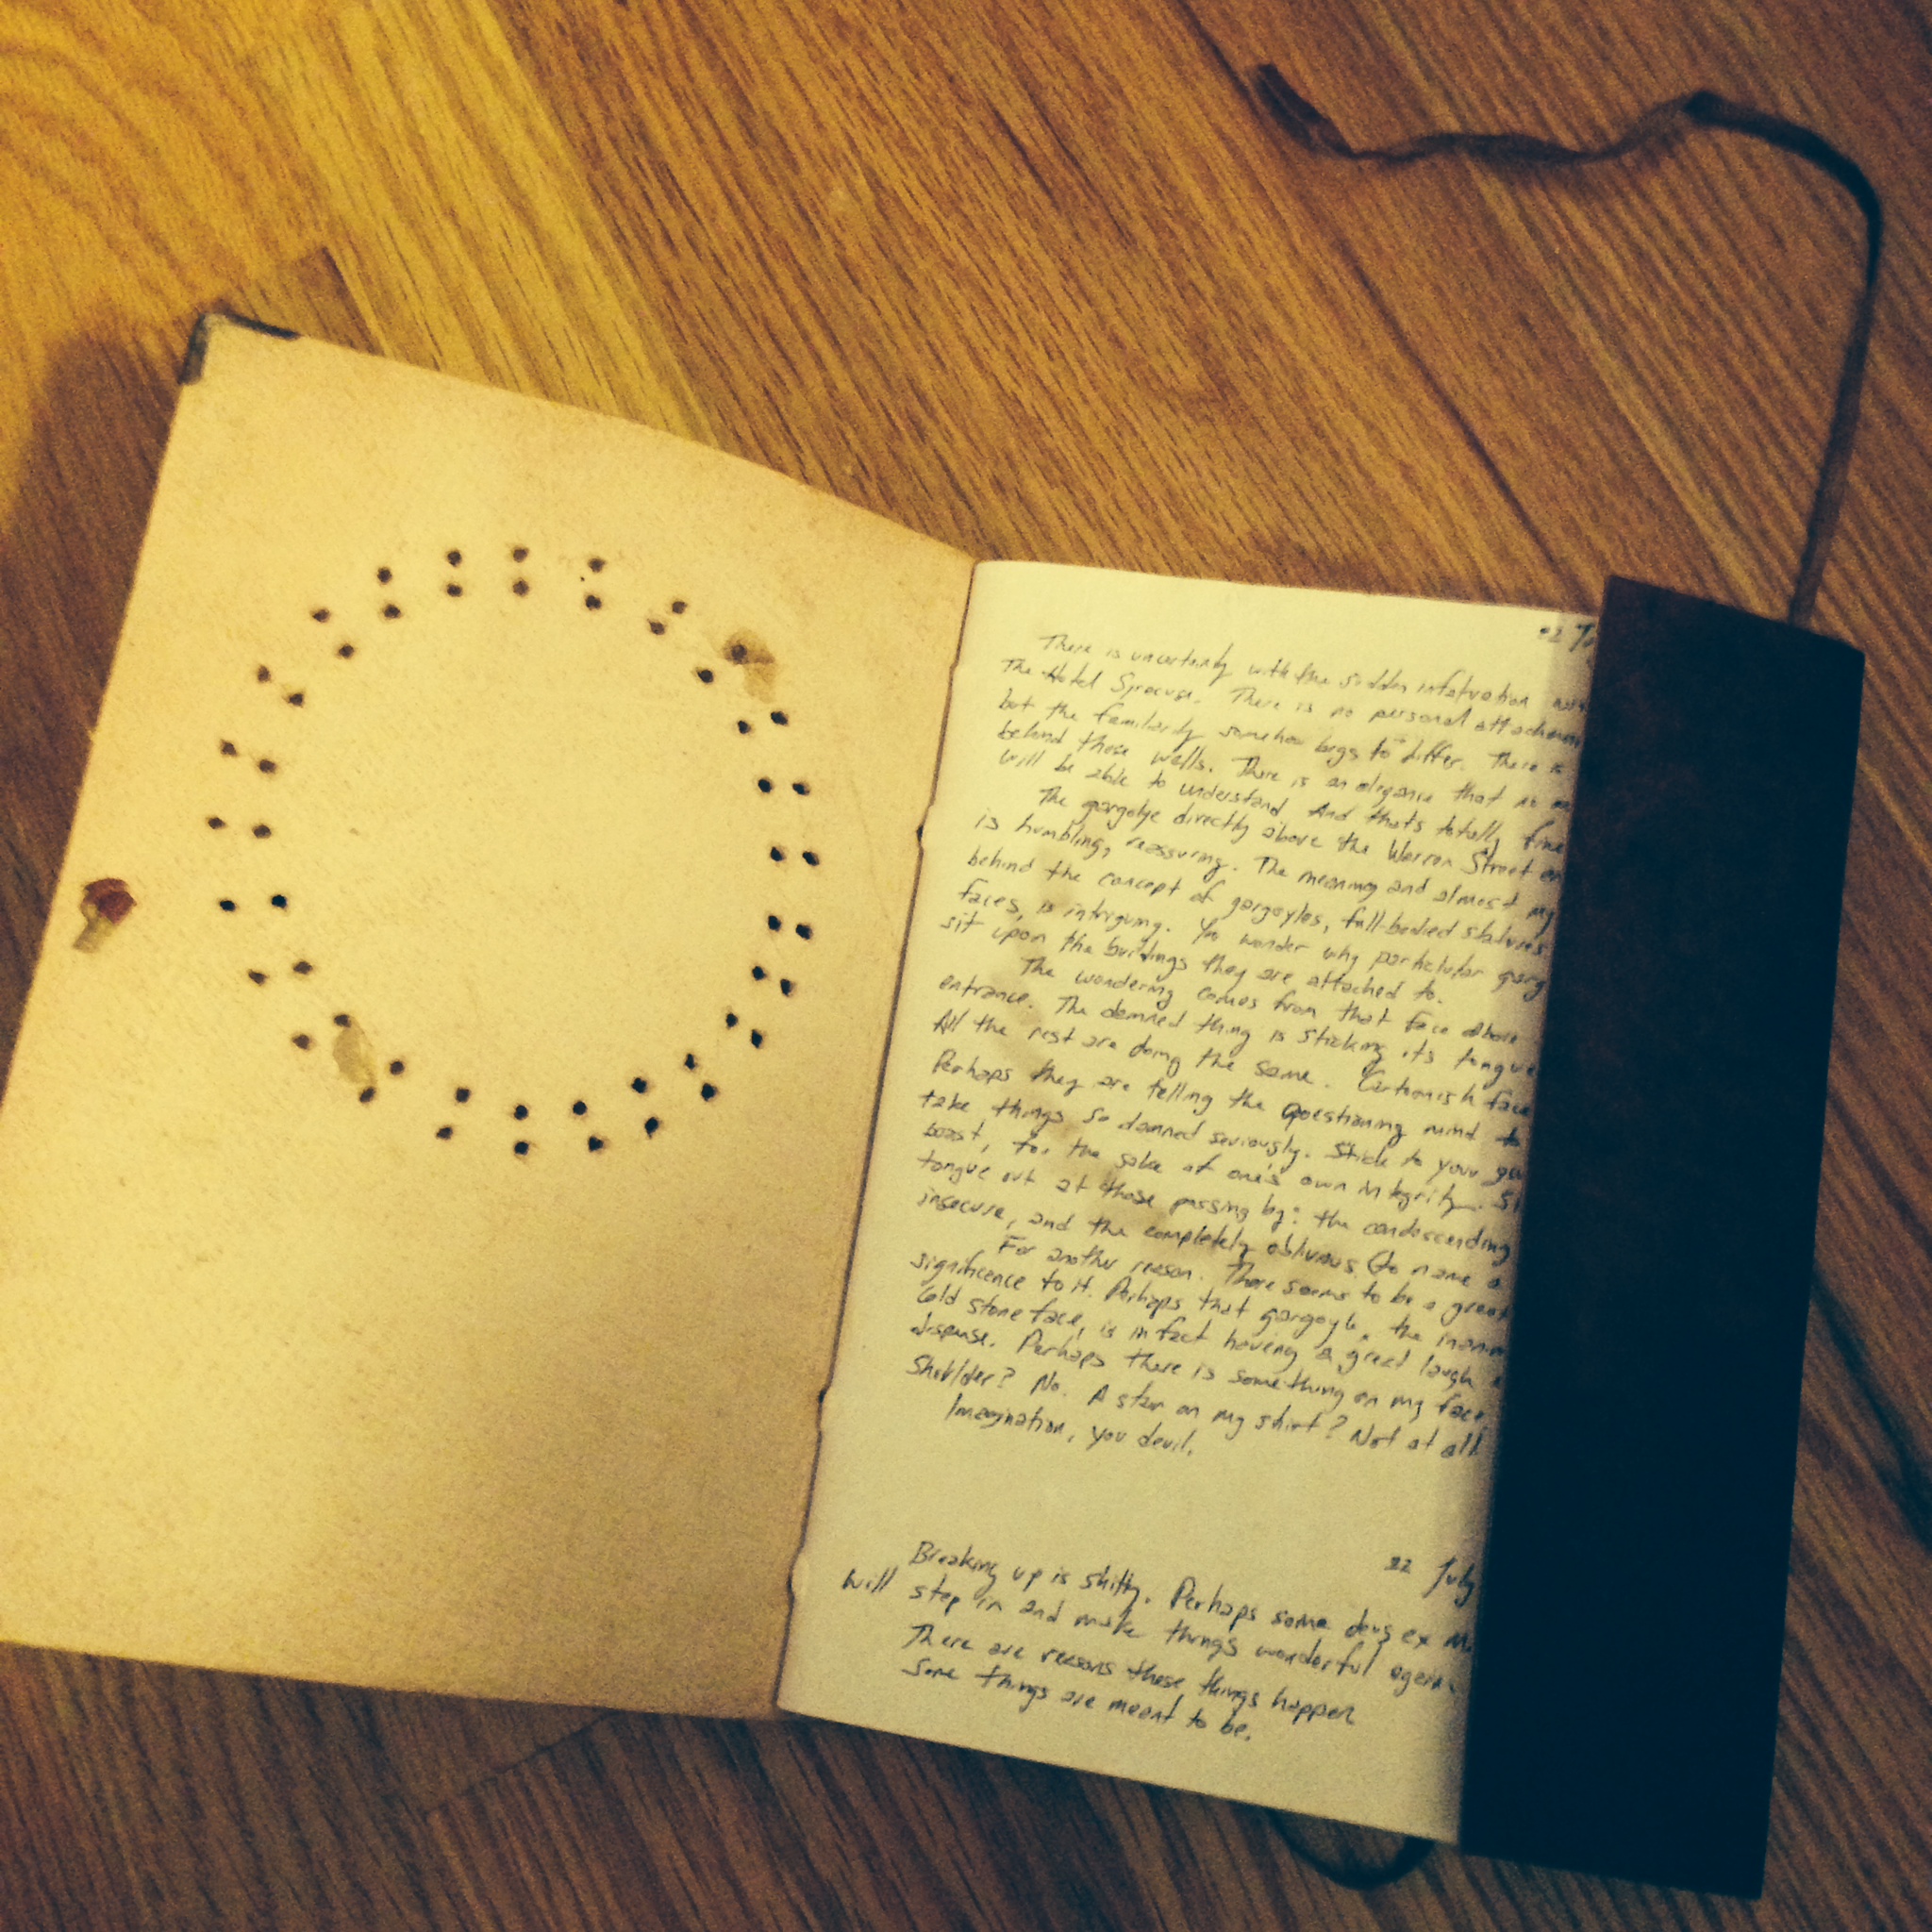 22
There is uncertainty with the sudden infatuation
The Hotel Syracuse. There is no personal
but the familiarity somehow begs to differ. There is
behind those walls. There is an elegance that no
will be able to understand. And thats totally fine
The gargolye directly above the Warren Street
is humbling, reassuring. The meaning and almost
behind the concept of gargoyles, full-bodied statues
faces, is intriguing. You wonder why particular
sit upon the buildings they are attached to.
The wondering comes from that face above
entrance. The damned thing is sticking its tongue
All the rest are doing the same. Cartoonish face
Perhaps they are telling the questioning mind to
take things so damned seriously. Stick to your
boast, for the sake of one's own integrity.
tongue out at those passing by: the condescending
insecure, and the completely oblivious (to name a
For another reason. There seems to be a great
significence to it. Perhaps that gargoyle, the
cold stone face, is in fact having a great laugh
Perhaps there is something on my face,
Shoulder? No. A stain on my shirt? Not at all.
Imagination, you devil.
22 July
Breaking up is shitty. Perhaps some deus ex
will step in and make things wonderful again.
There are reasons these things happen
Some things are meant to be.